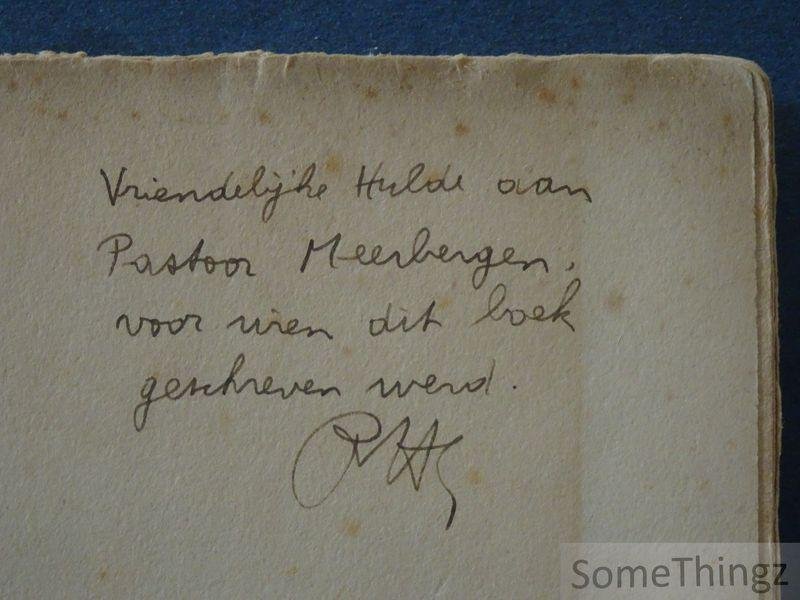 Vriendelijke Hulde aan
Pastoor Meerbergen,
voor wien dit boek
geschreven werd.
SomeThingz